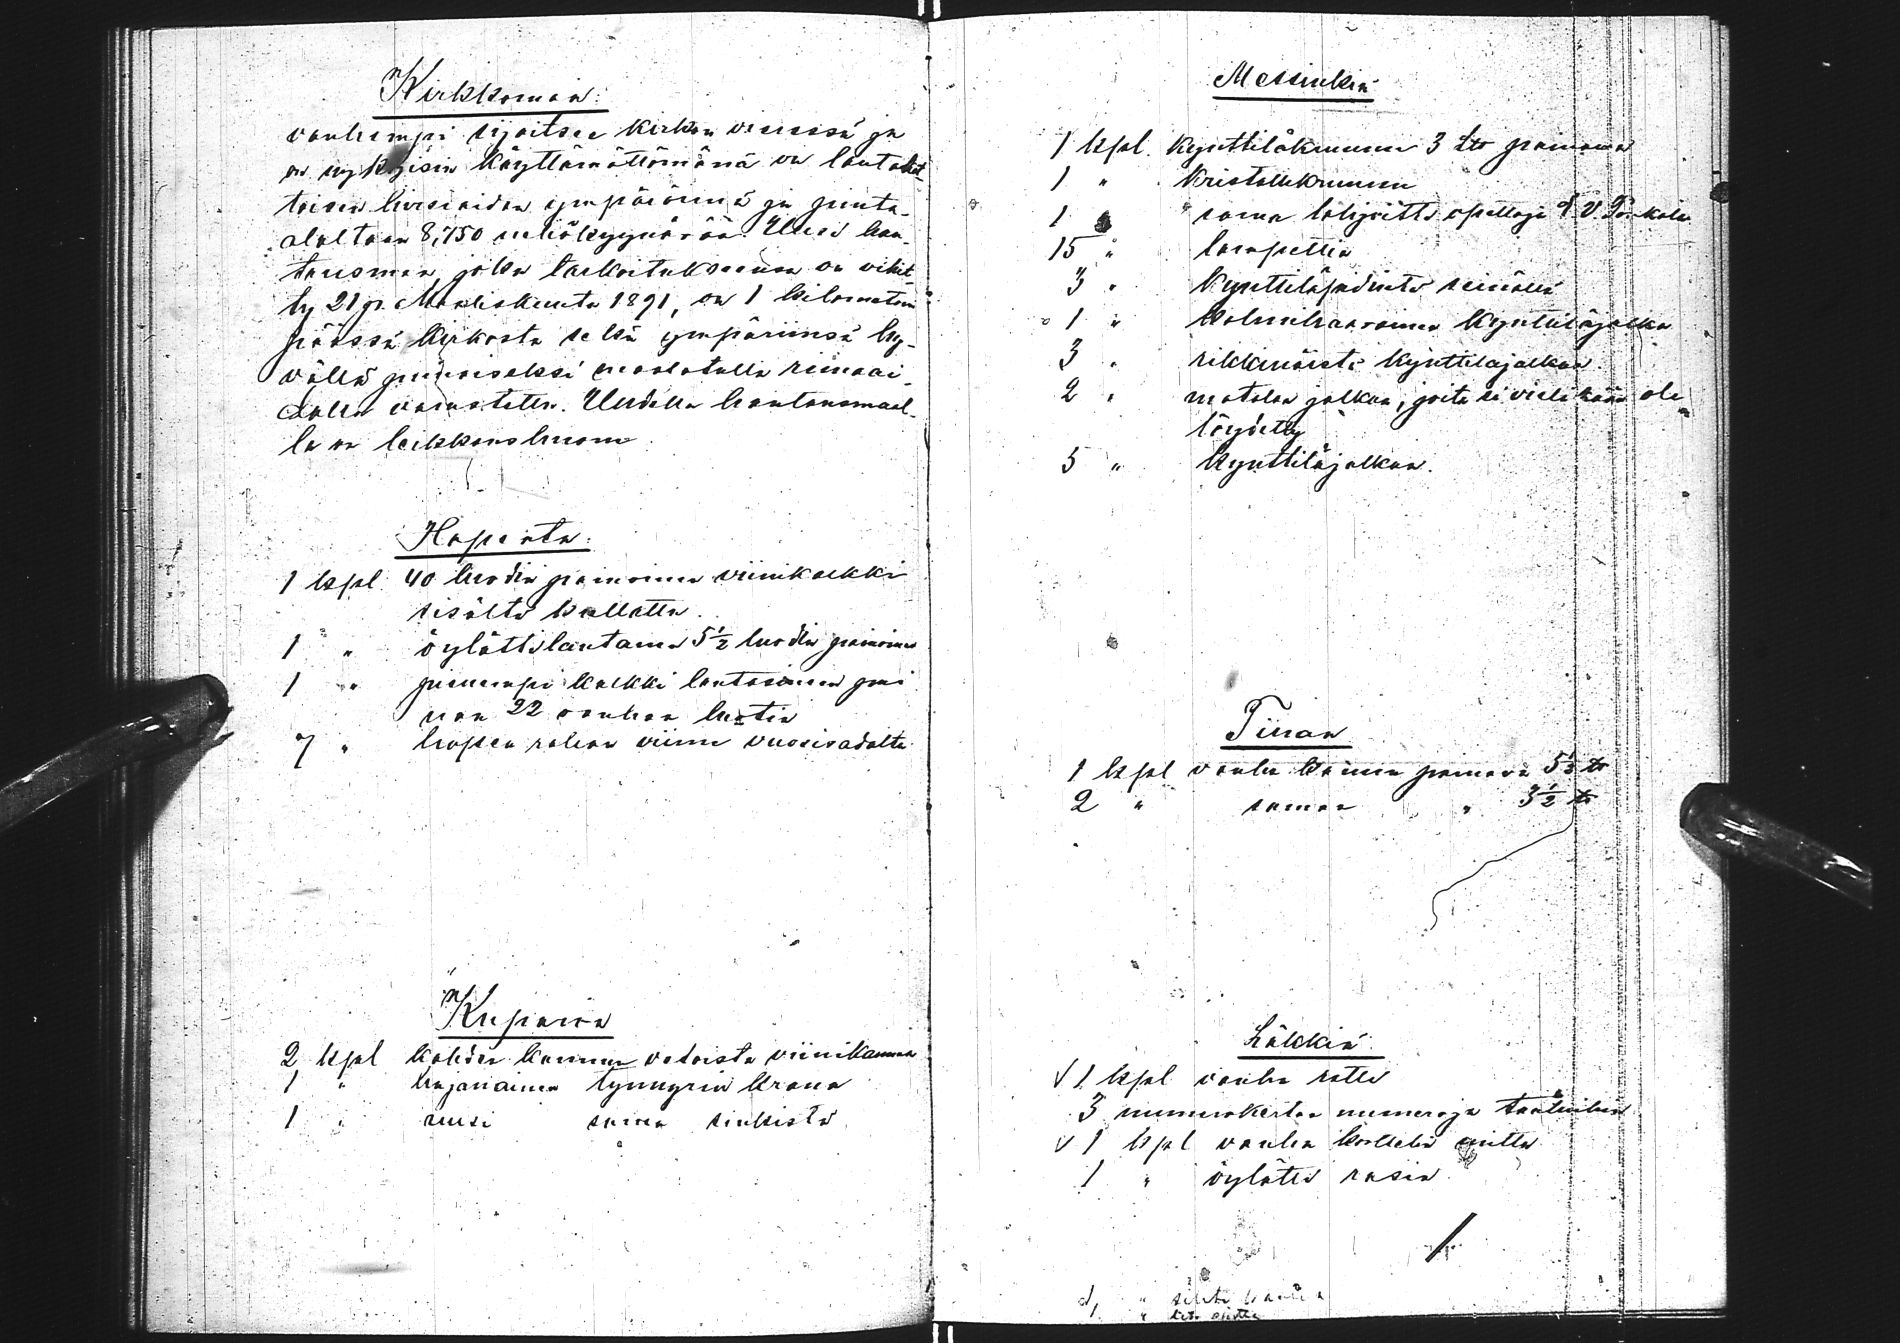 Kirkkomaa:
vanhempi sijaitsee kirkon vieressä ja
on nykyisin käyttämättömänä on lautakat-
toisen hirsiaidan ympäröimä ja pinta-
alaltaan 8,750 neliökyynärää. Uusi hau-
tausmaa, joka tarkoitukseensa on vihit-
ty 21 p. Maaliskuuta 1891, on 1 kilometrin
päässä kirkosta sekä ympäriinsä hy-
vällä punaiseksi maalatulla riimaai-
dalla varustettu. Uudella hautausmaal-
la on leikkaushuone
Hopeata:
1 kpl. 40 luodin painoinen viinikalkki
sisältä kullattu.
1 " öylättilautanen 5½ luodin painoinen
1 " pienempi kalkki lautasineen pai
naa 22 vanhaa luotia
7 " hopea rahaa viime vuosisadalta
Kuparia
2 kpl kahden kannun vetoista viinikannua
1 " kujanainen tynnyrin krana
1 " uusi sama sinkistä
Messinkiä
1 kpl. kynttiläkruunu 3 painava
1 " kristallikruunu
1 " sama lahjoitti opettaja
15 " lampettia
3 " kynttiläpidintä seinällä
1 " kolmihaarainen kynttiläjalka
3 " rikkinäistä kynttiläjalkaa
2 " matalaa jalkaa, joita ei vielä ole
löydetty
5 " kynttiläjalkaa.
Tinaa
1 kpl vanha kannu painava 5½ ℔
2 " samaa " 3½ ℔
Läkkiä
√ 1 kpl vanha ratti
3 numerokertaa numeroja tauluihin
√ 1 kpl vanha korttelin mitta
1 " öylätti rasia